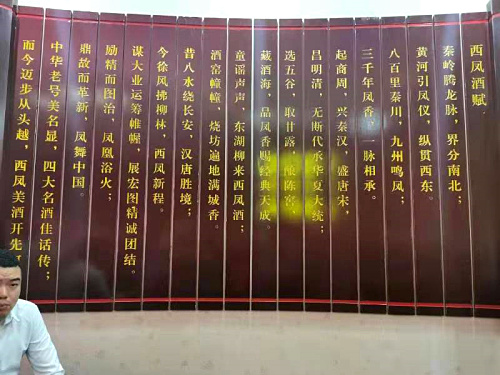 西凤酒赋
秦岭腾龙脉，界分南北；
黄河引凤仪，纵贯西东。
八百里秦川，九州鸣凤；
三千年凤香，一脉相承。
起商周，兴秦汉，盛唐宋，
昌明清，无断代承华夏大统；
选五谷，取甘露，酿陈窖，
藏酒海，品凤香赐经典天成。
童谣声声，东湖柳来西凤酒；
酒窑幢幢，烧坊遍地满城香。
昔八水绕长安，汉唐胜境；
今徐风拂柳林，西凤新程。
谋大业运筹帷幄，展宏图精诚团结。
励精而图治，凤凰浴火；
鼎故而革新，凤舞中国。
中华老号美名显，四大名酒佳话传；
而今迈步从头越，西凤美酒开先